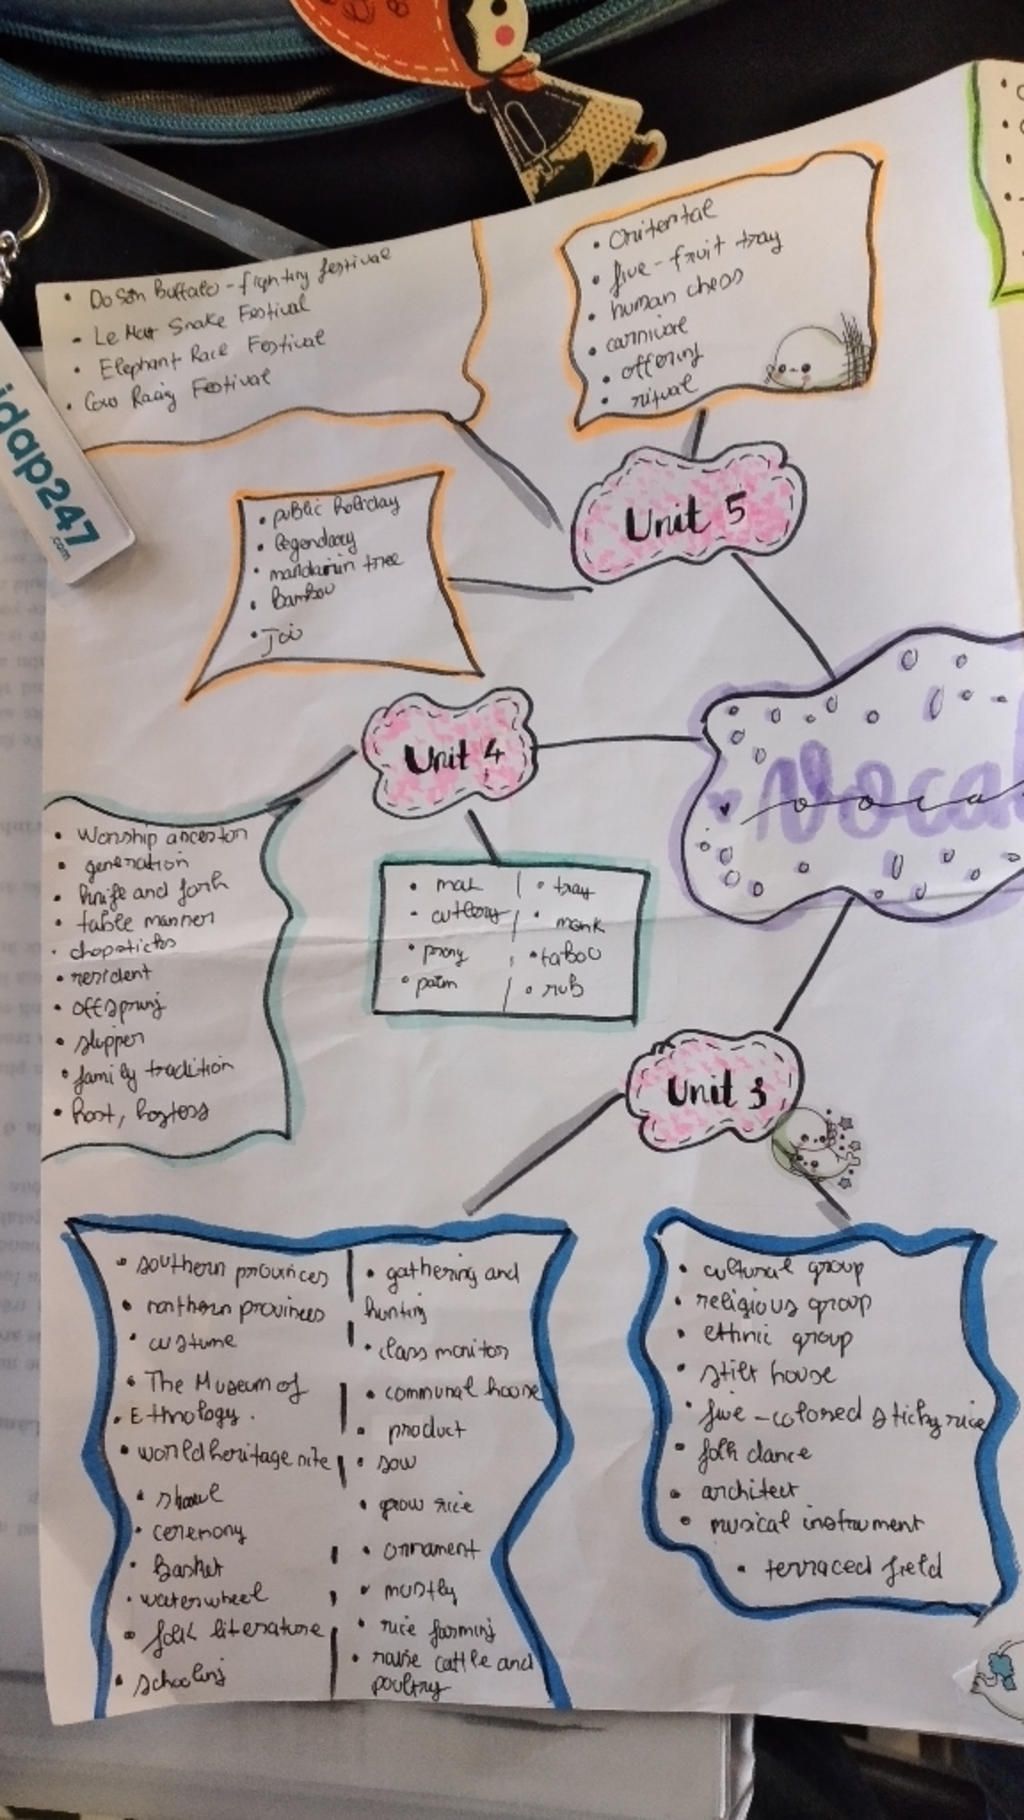 • Do Son Buffalo - fighting festival
• Le Mat Snake Festival
• Elephant Race Festival
• Cow Racing Festival
• five - fruit tray
• human chess
• carnivale
• offering
• ritual
idap247
.com
Unit 5
• public holiday
• legendary
• mandarin tree
• Bamboo
Unit 4
Vocal
• Worship ancestor
• generation
• knife and fork
• table manner
• chopsticks
• resident
• offspring
• slipper
• family tradition
• host, hostess
• mat | • tray
• cutlery | • monk
• pray | • taboo
| • rub
Unit 3
• southern provinces
• northern provinces
• custume
• The Museum of
• Ethnology.
• world heritage site
• shawl
• ceremony
• Basket
• waterwheel
• folk literature
• schooling
• gathering and
hunting
• class monitor
• communal house
• product
• sow
• grow rice
• ornament
• mostly
• rice farming
• raise cattle and
poultry
• cultural group
• religious group
• ethnic group
• stilt house
• five - colored sticky rice
• folk dance
• architect
• musical instrument
• terraced field